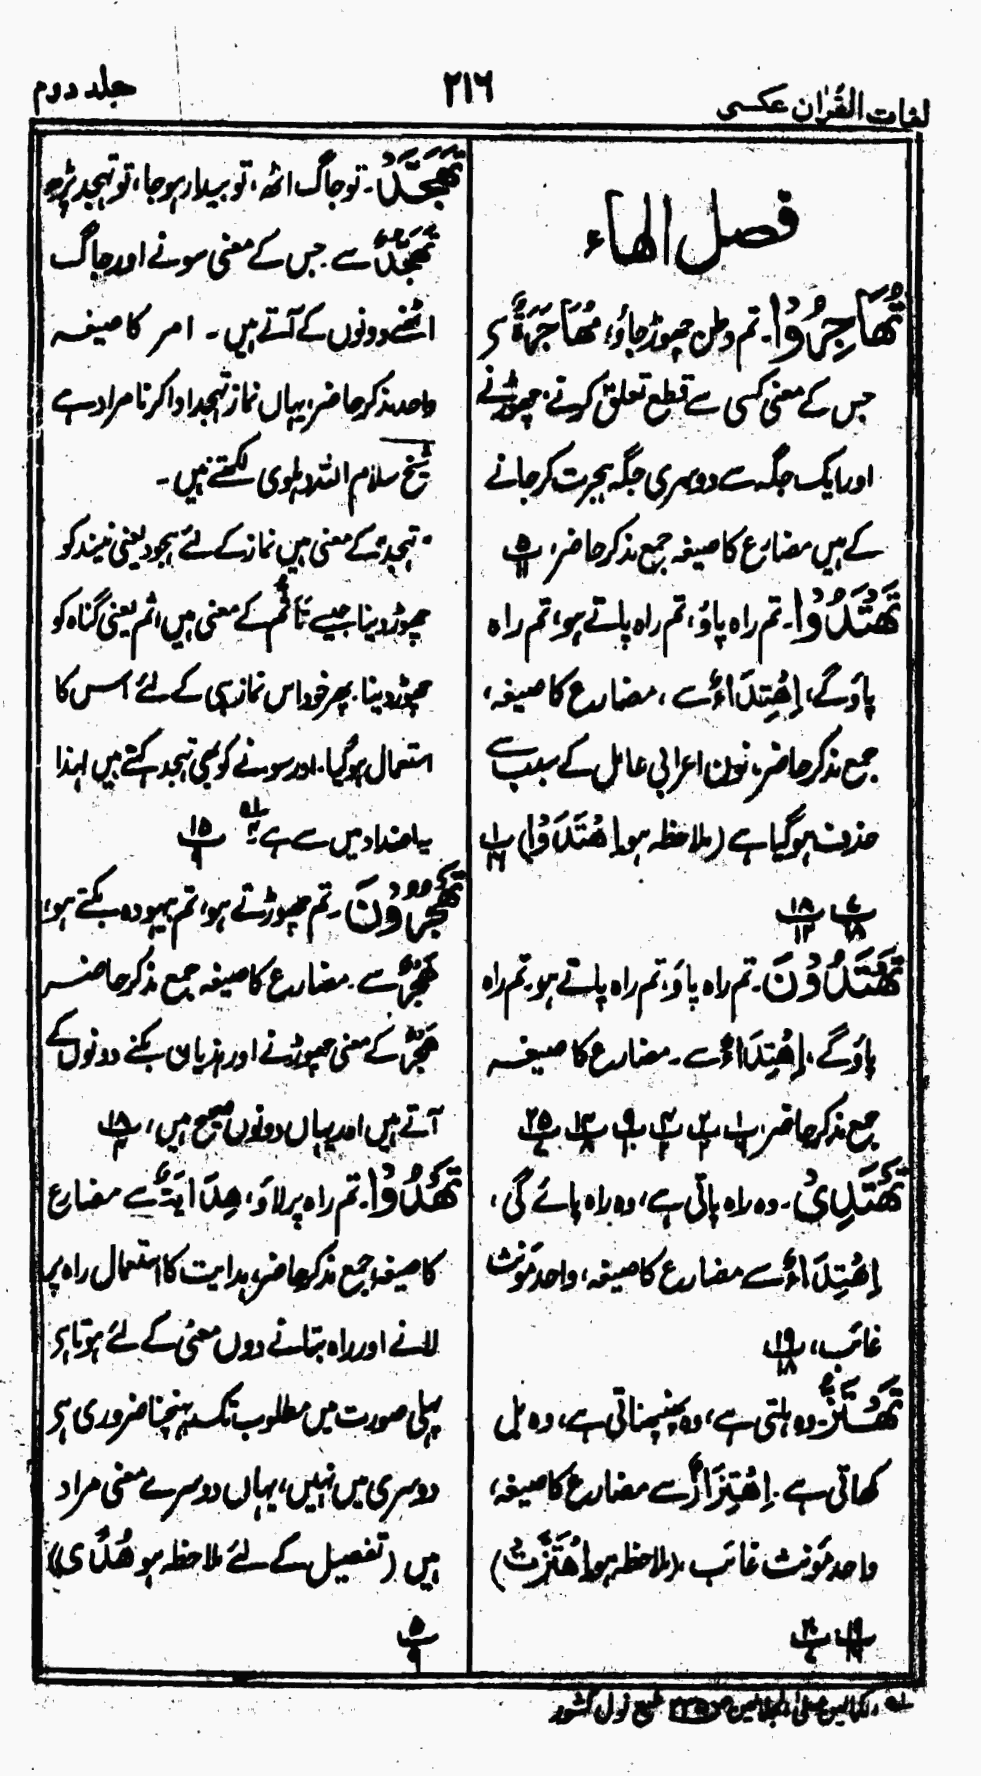 لغات القرآن عکسی
۲۱۶
جلد دوم
فصل الهاء
تُهَاجِرُوْا۔ تم وطن چھوڑ جاؤ، مُهَاجَرَةٌ سے
جس کے معنی کسی سے قطع تعلق کرنے، چھوڑنے
اور ایک جگہ سے دوسری جگہ ہجرت کر جانے
کے ہیں مضارع کا صیغہ جمع مذکر حاضر، پ۵/۱۱
تَهْتَدُوْا۔ تم راہ پاؤ، تم راہ پاتے ہو، تم راہ
پاؤ گے، اِهْتِدَاءٌ سے، مضارع کا صیغہ،
جمع مذکر حاضر، نون اعرابی عامل کے سبب سے
حذف ہو گیا ہے (ملاحظہ ہو اِهْتَدَوْا) پ۱/۱۶
پ۷/۱۸ پ۱۸/۱۳
تَهْتَدُوْنَ۔ تم راہ پاؤ، تم راہ پاتے ہو۔ تم راہ
پاؤ گے، اِهْتِدَاءٌ سے۔ مضارع کا صیغہ
جمع مذکر حاضر، پ۱/۶ پ۲/۲ پ۴/۲ پ۹/۱۰ پ۱۴/۸ پ۲۵/۷
تَهْتَدِیْ۔ وہ راہ پاتی ہے، وہ راہ پائے گی،
اِهْتِدَاءٌ سے مضارع کا صیغہ، واحد مؤنث
غائب، پ۱۹/۱۸
تَهْتَزُّ۔ وہ ہلتی ہے، وہ پھنپھناتی ہے، وہ بل
کھاتی ہے۔ اِهْتِزَازٌ سے مضارع کا صیغہ،
واحد مؤنث غائب، (ملاحظہ ہو اِهْتَزَّتْ)
پ۱۹ پ۲۰/۷
تَهَجَّدْ۔ تو جاگ اٹھ، تو بیدار ہو جا، تو تہجد پڑھ
تَهَجُّدٌ سے۔ جس کے معنی سونے اور جاگ
اٹھنے دونوں کے آتے ہیں۔ امر کا صیغہ
واحد مذکر حاضر، یہاں نماز تہجد ادا کرنا مراد ہے
شیخ سلام اللہ دہلوی لکھتے ہیں۔
"تہجد" کے معنی ہیں نماز کے لئے ہجود یعنی نیند کو
چھوڑ دینا جیسے تَأَثُّم کے معنی ہیں اثم یعنی گناہ کو
چھوڑ دینا۔ پھر خود اس نماز ہی کے لئے اس کا
استعمال ہو گیا۔ اور سونے کو بھی تہجد کہتے ہیں لہذا
یہ اضداد میں سے ہے لہ پ۱۵/۹
تَهْجُرُوْنَ۔ تم چھوڑتے ہو، تم بیہودہ بکتے ہو،
هَجْرٌ سے۔ مضارع کا صیغہ جمع مذکر حاضر
هَجْرٌ کے معنی چھوڑنے اور ہذیان بکنے دونوں کے
آتے ہیں اور یہاں دونوں صحیح ہیں، پ۱۸/۴
تَهْدُوْا۔ تم راہ پر لاؤ، هِدَايَةٌ سے مضارع
کا صیغہ، جمع مذکر حاضر، ہدایت کا استعمال راہ پر
لانے اور راہ بتانے دوں معنیٰ کے لئے ہوتا ہے
پہلی صورت میں مطلوب تک پہنچنا ضروری ہے
دوسری میں نہیں، یہاں دوسرے معنی مراد
ہیں (تفصیل کے لئے ملاحظہ ہو هُدًی)
پ۵/۹
لہ کمالین علیٰ الجلالین ص طبع نول کشور